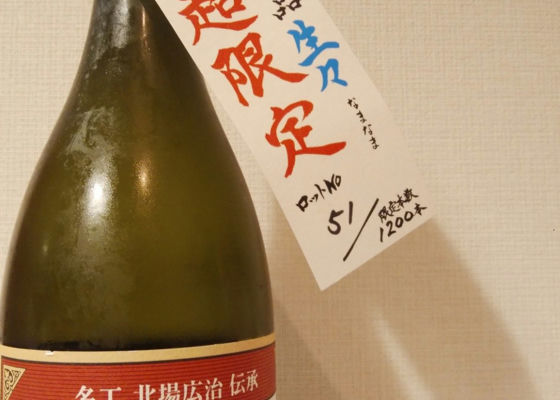 超限定
品 生々
なまなま
ロットNo
51/
限定本数
1200本
名工 北場広治 伝承